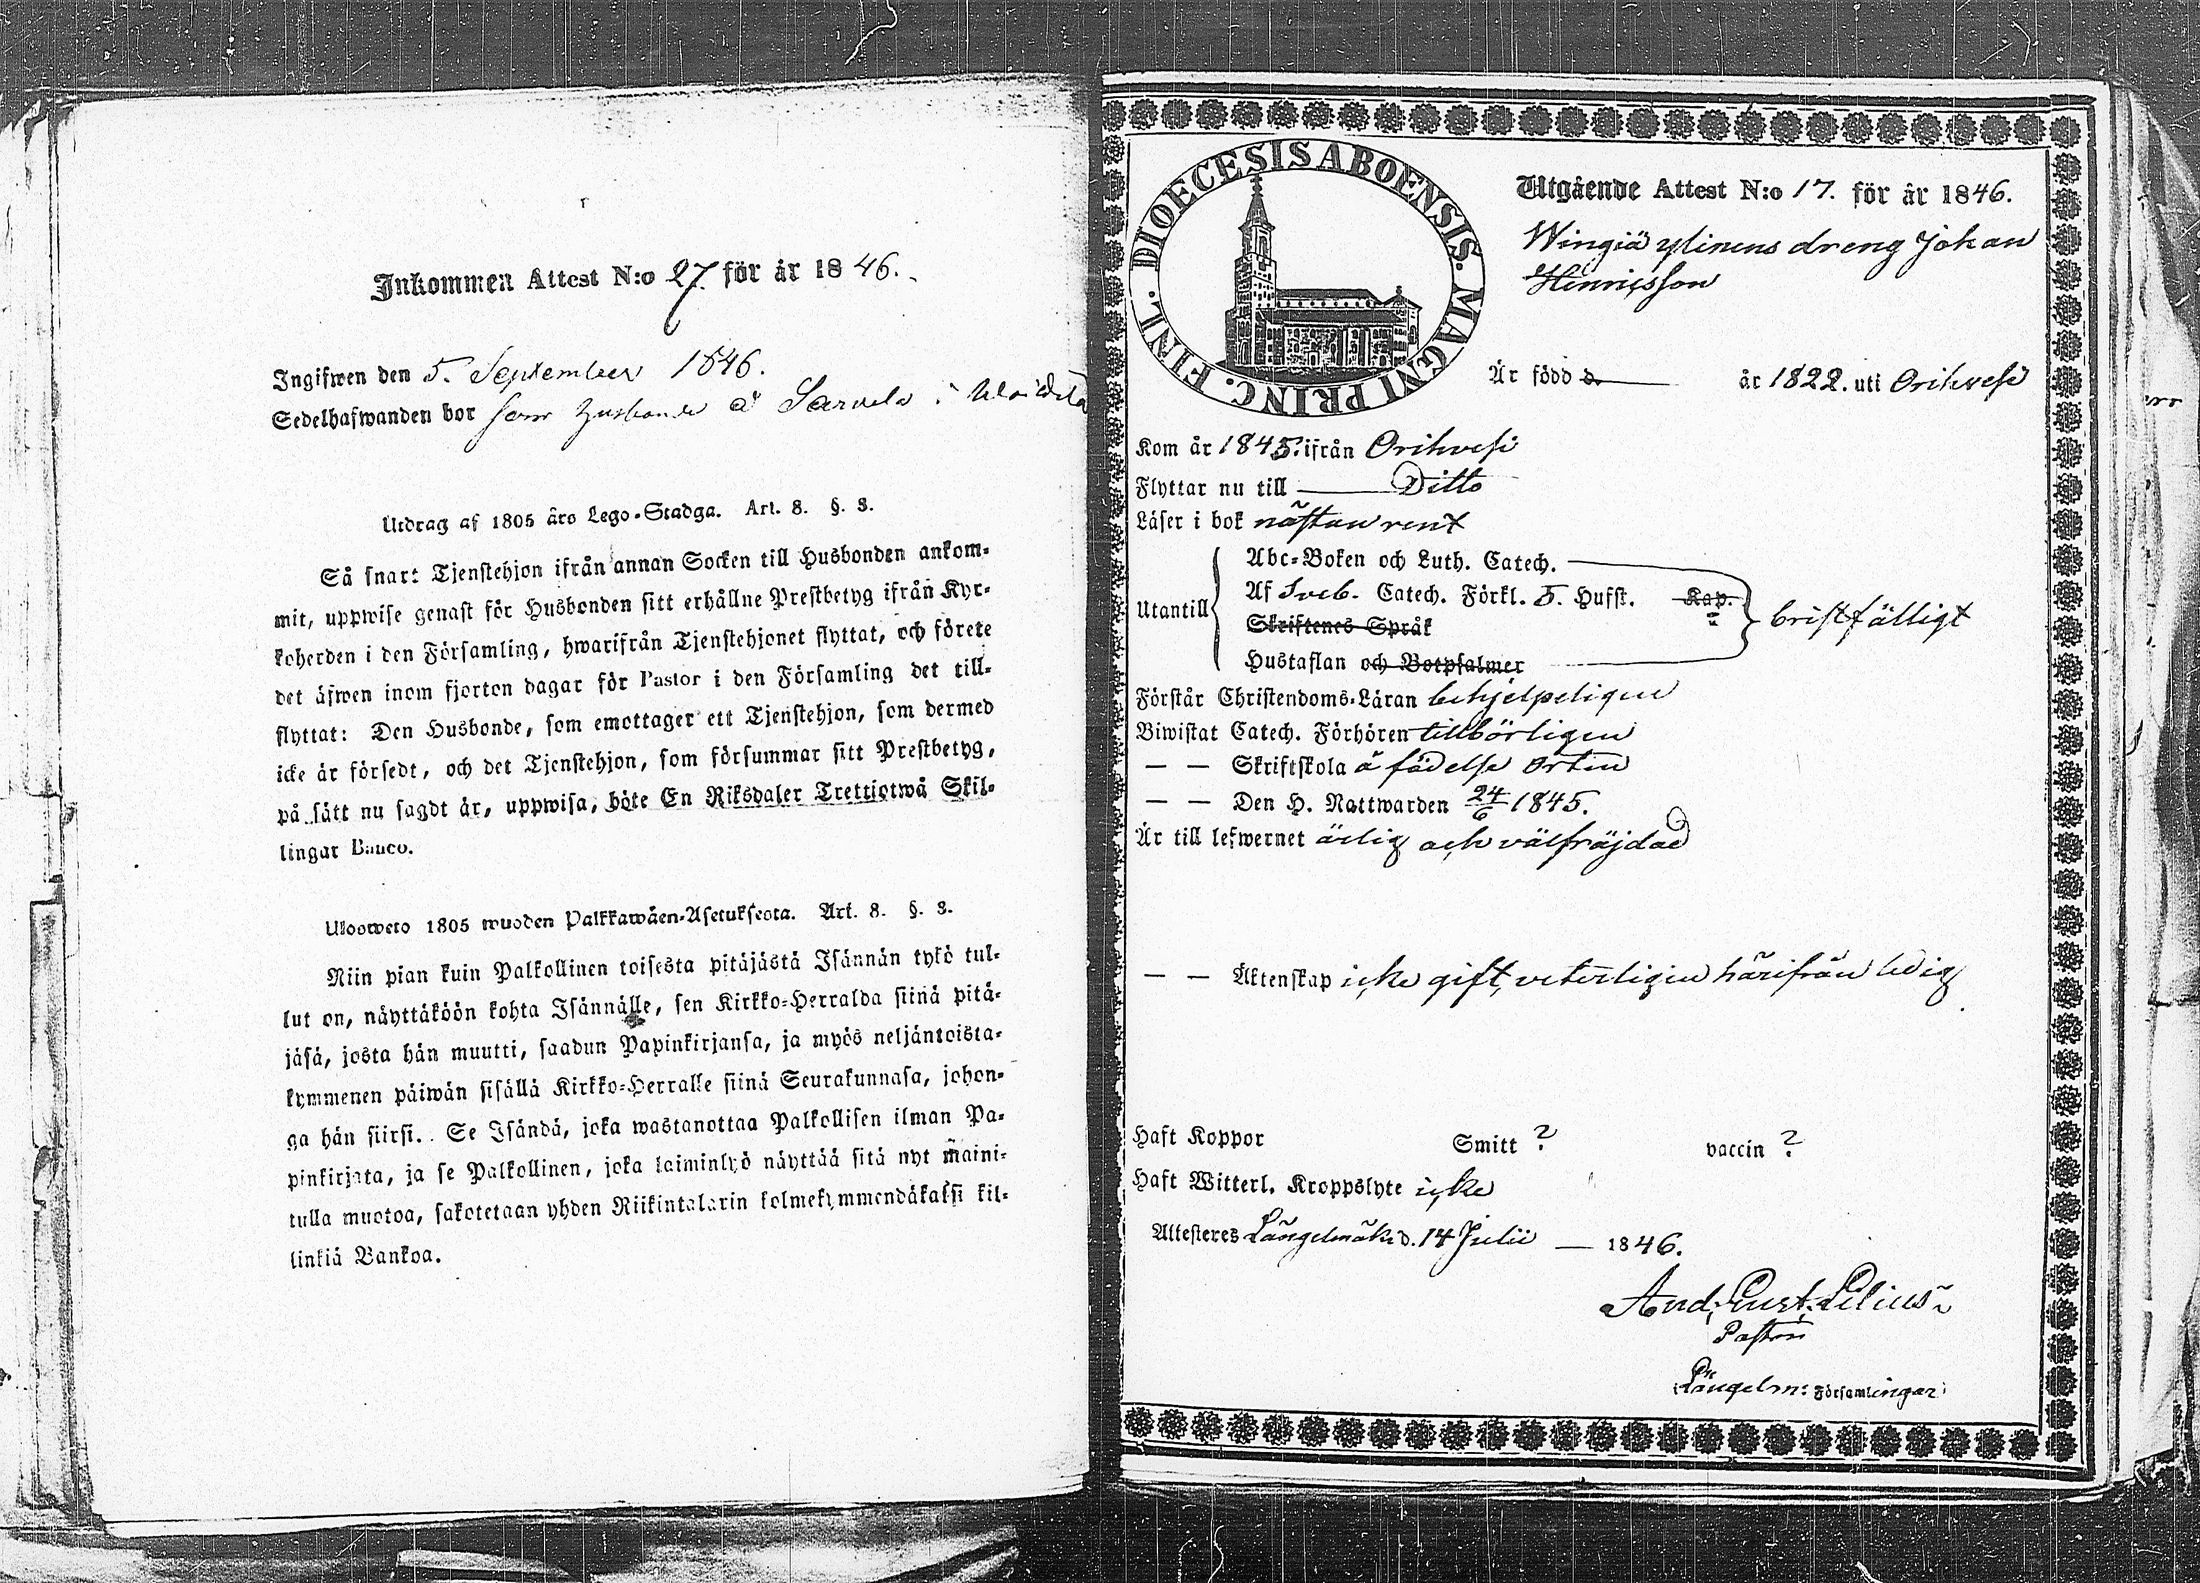 Inkommen Attest N:o 27. för år 1846.
Ingifwen den 5. September 1846.
Sedelhafwanden bor som husbonde å Sarvela i
Utdrag af 1805 års Lego-Stadga. Art. 8. §. 3.
Så snart Tjenstehjon ifrån annan Socken till Husbonden ankom-
mit, uppwise genast för Husbonden sitt erhållne Prestbetyg ifrån Kyr-
koherden i den Församling, hwarifrån Tjenstehjonet flyttat, och förete
det äfwen inom fjorton dagar för Pastor i den Församling det till-
flyttat: Den Husbonde, som emottager ett Tjenstehjon, som dermed
icke är försedt, och det Tjenstehjon, som försummar sitt Prestbetyg,
på sätt nu sagdt är, uppwisa, böte En Riksdaler Trettiotwå Skil-
lingar Banco.
Ulosweto 1805 wuoden Palkkawäen-Asetuksesta. Art. 8. §. 3.
Niin pian kuin Palkollinen toisesta pitäjästä Isännän tykö tul-
lut on, näyttäköön kohta Isännälle, sen Kirkko-Herralda siinä pitä-
jäsä, josta hän muutti, saadun Papinkirjansa, ja myös neljäntoista-
kymmenen päiwän sisällä Kirkko-Herralle siinä Seurakunnasa, johon-
ga hän siirsi. Se Isändä, joka wastanottaa Palkollisen ilman Pa-
pinkirjata, ja se Palkollinen, joka laiminlyö näyttää sitä nyt maini-
tulla muotoa, sakotetaan yhden Riikintalarin kolmekymmendäkaksi kil-
linkiä Bankoa.
DIOECESIS ABOENSIS. MAGNI PRINC. FINL.
Utgående Attest N:o 17. för år 1846.
Wingiä ylinens dreng Johan
Henricsson
Är född d. år 1822. uti Orihvesi
Kom år 1845. ifrån Orihvesi
Flyttar nu till Ditto
Läser i bok nästan rent
Utantill
Abc-Boken och Luth. Catech.
Af Sveb. Catech. Förkl. 5. Hufst. Kap.
Skriftenes Språk
Hustaflan och Botpsalmer
bristfälligt
Förstår Christendoms-Läran behjelpeligen
Biwistat Catech. Förhören tillbörligen
— — Skriftskola å födelse orten
— — Den H. Nattwarden 24/6 1845.
Är till lefwernet ärlig och välfräjdad
— — Äktenskap icke gift, veterligen härifrån ledig
Haft Koppor Smitt ? vaccin ?
Haft Witterl. Kroppslyte icke
Attesteres Längelmäki d. 14 Julii — 1846.
And. Gust. Lilius
Pastor
Längelm: Församlingar